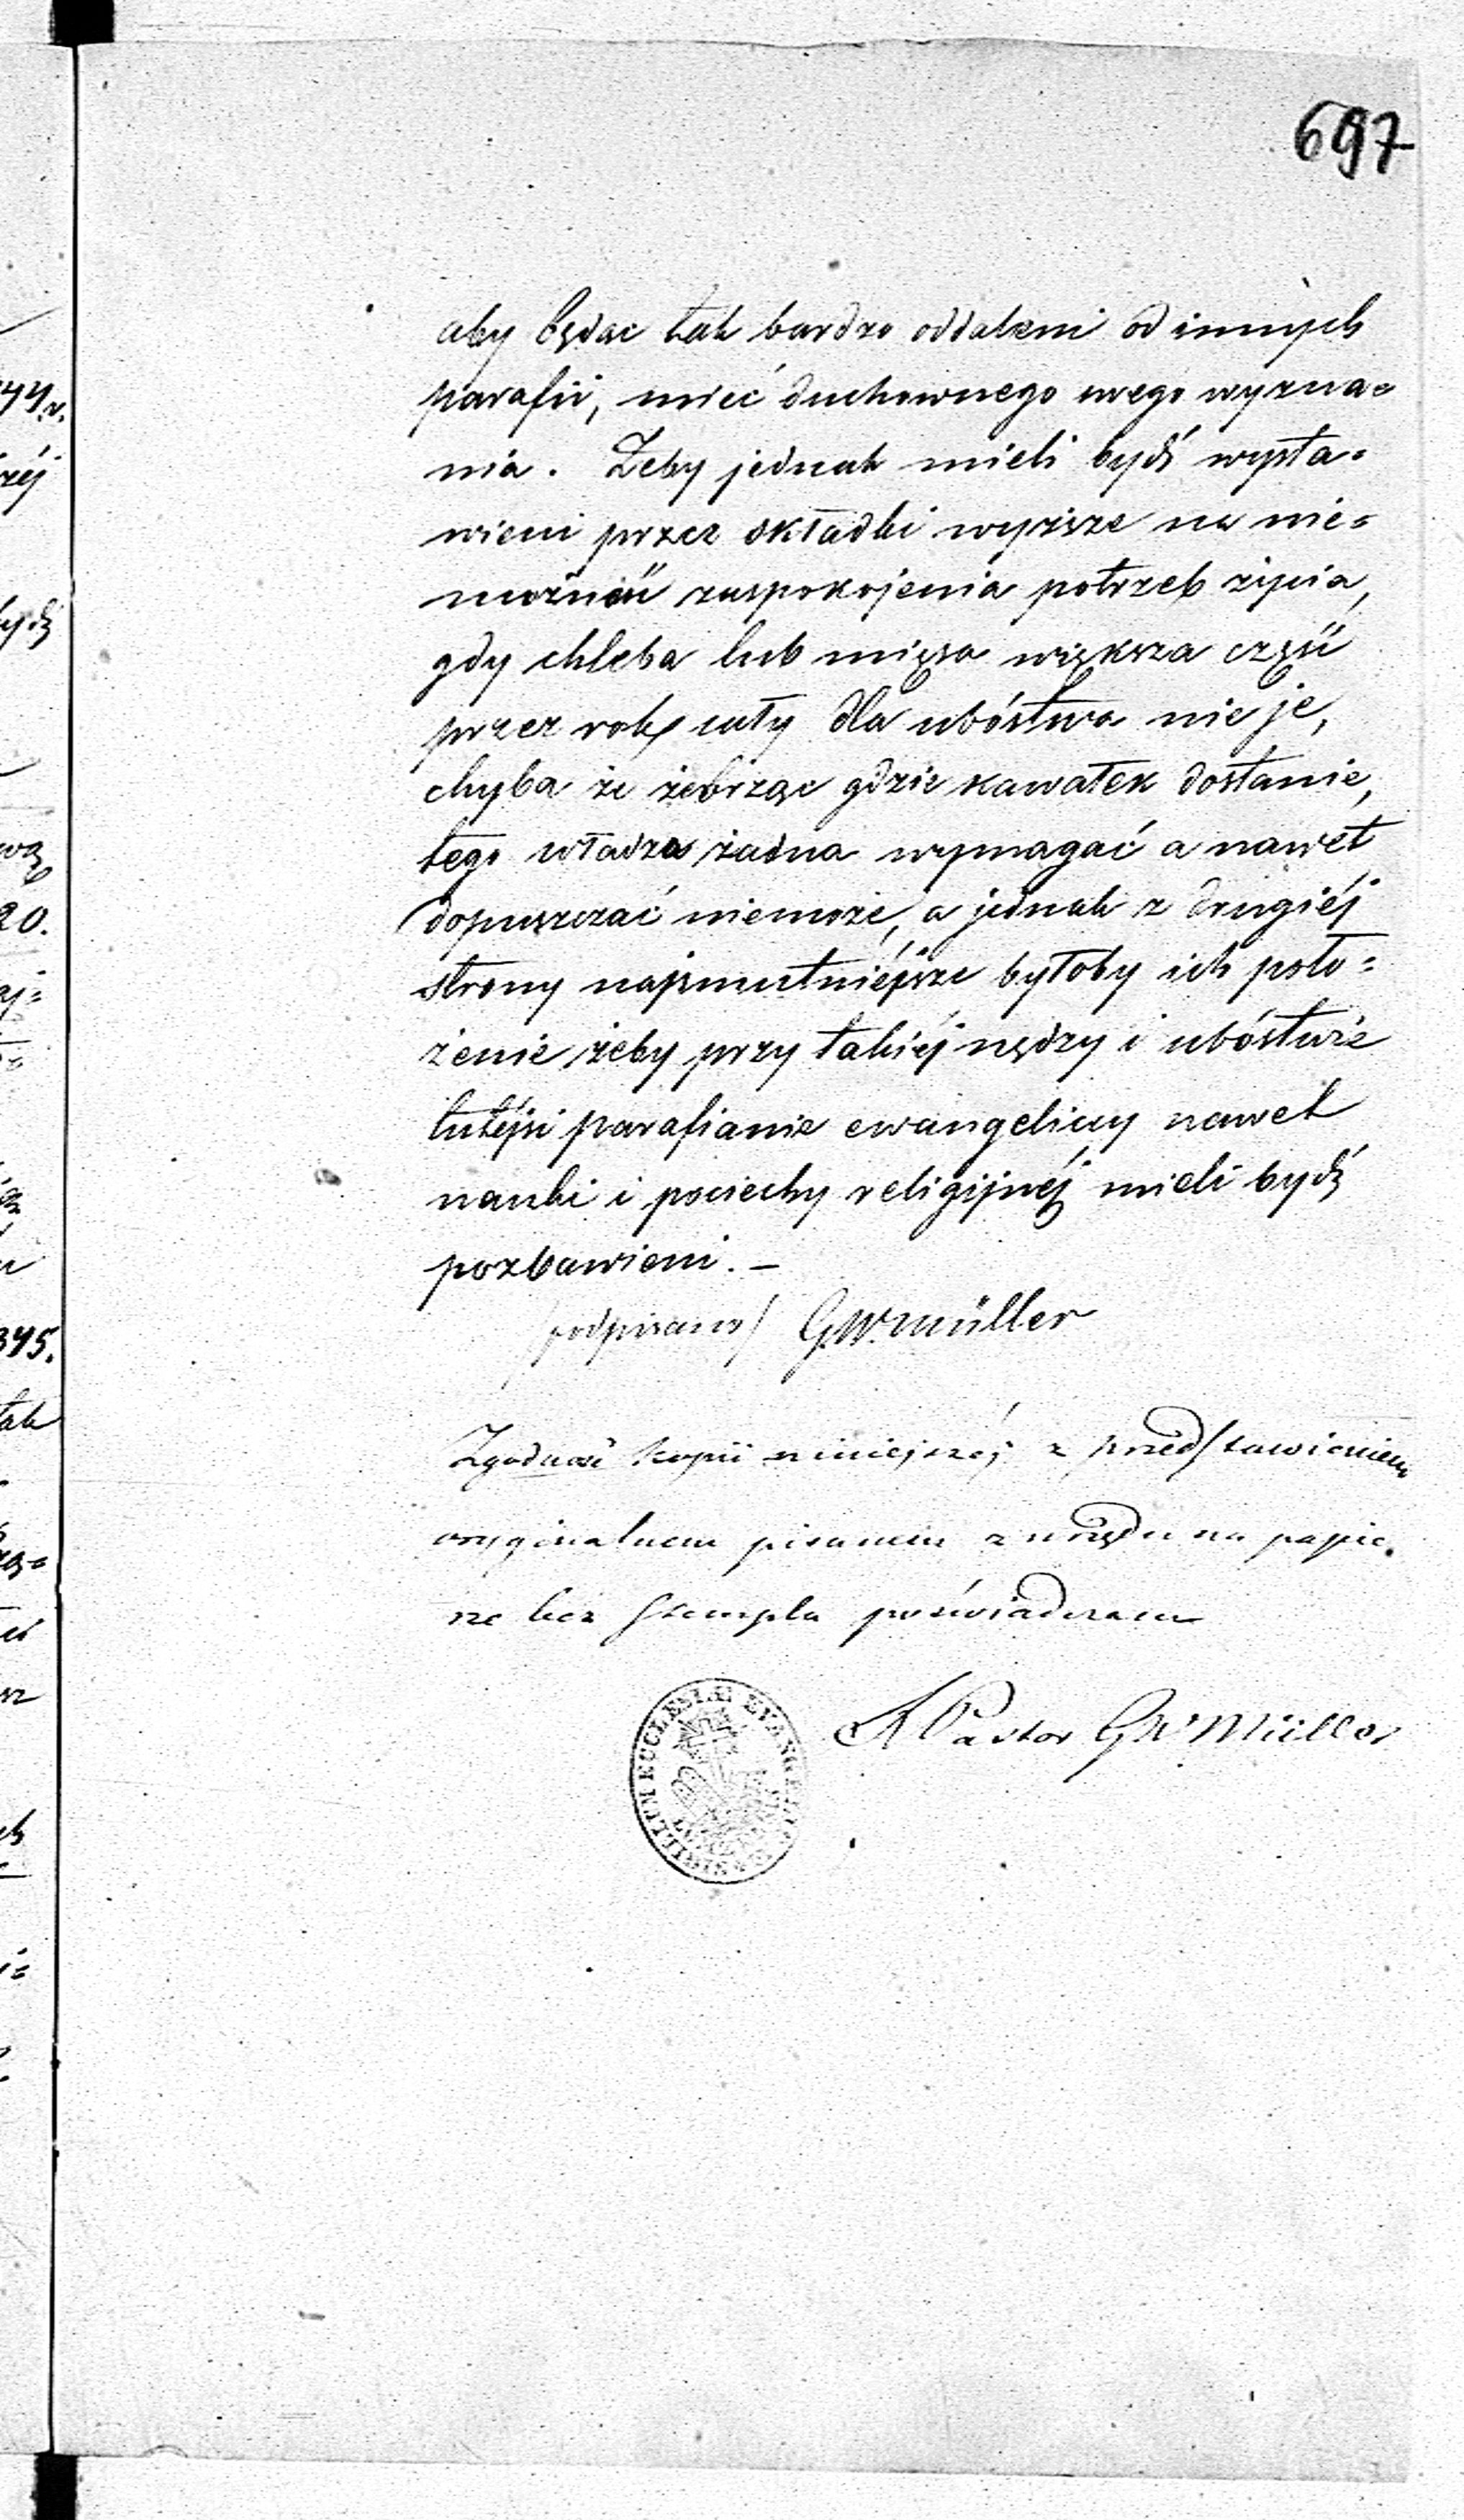 697
aby będąc tak bardzo oddaleni od innych
parafii, mieć duchownego swego wyzna=
nia. Żeby jednak mieli bydź wysta=
wieni przez składki wyższe na nie=
możność zaspokojenia potrzeb życia,
gdy chleba lub mięsa większa część
przez rok cały dla ubóstwa nie je,
chyba że żebrząc gdzie kawałek dostanie,
tego władza żadna wymagać a nawet
dopuszczać niemoże, a jednak z drugiéj
strony najsmutniéjsze byłoby ich poło=
żenie, żeby przy takiéj nędzy i ubóstwie
tutéjsi parafianie ewangeliccy nawet
nauki i pociechy religijnéj mieli bydź
pozbawieni. –
podpisano/ G.W. Müller
Zgodność kopii niniejszéj z przedstawieniem
oryginalnem pisanem z urzędu na papie.
rze bez stempla poświadczam
Pastor GW Müller
SIGILLUM ECCLESIÆ EVANGEL